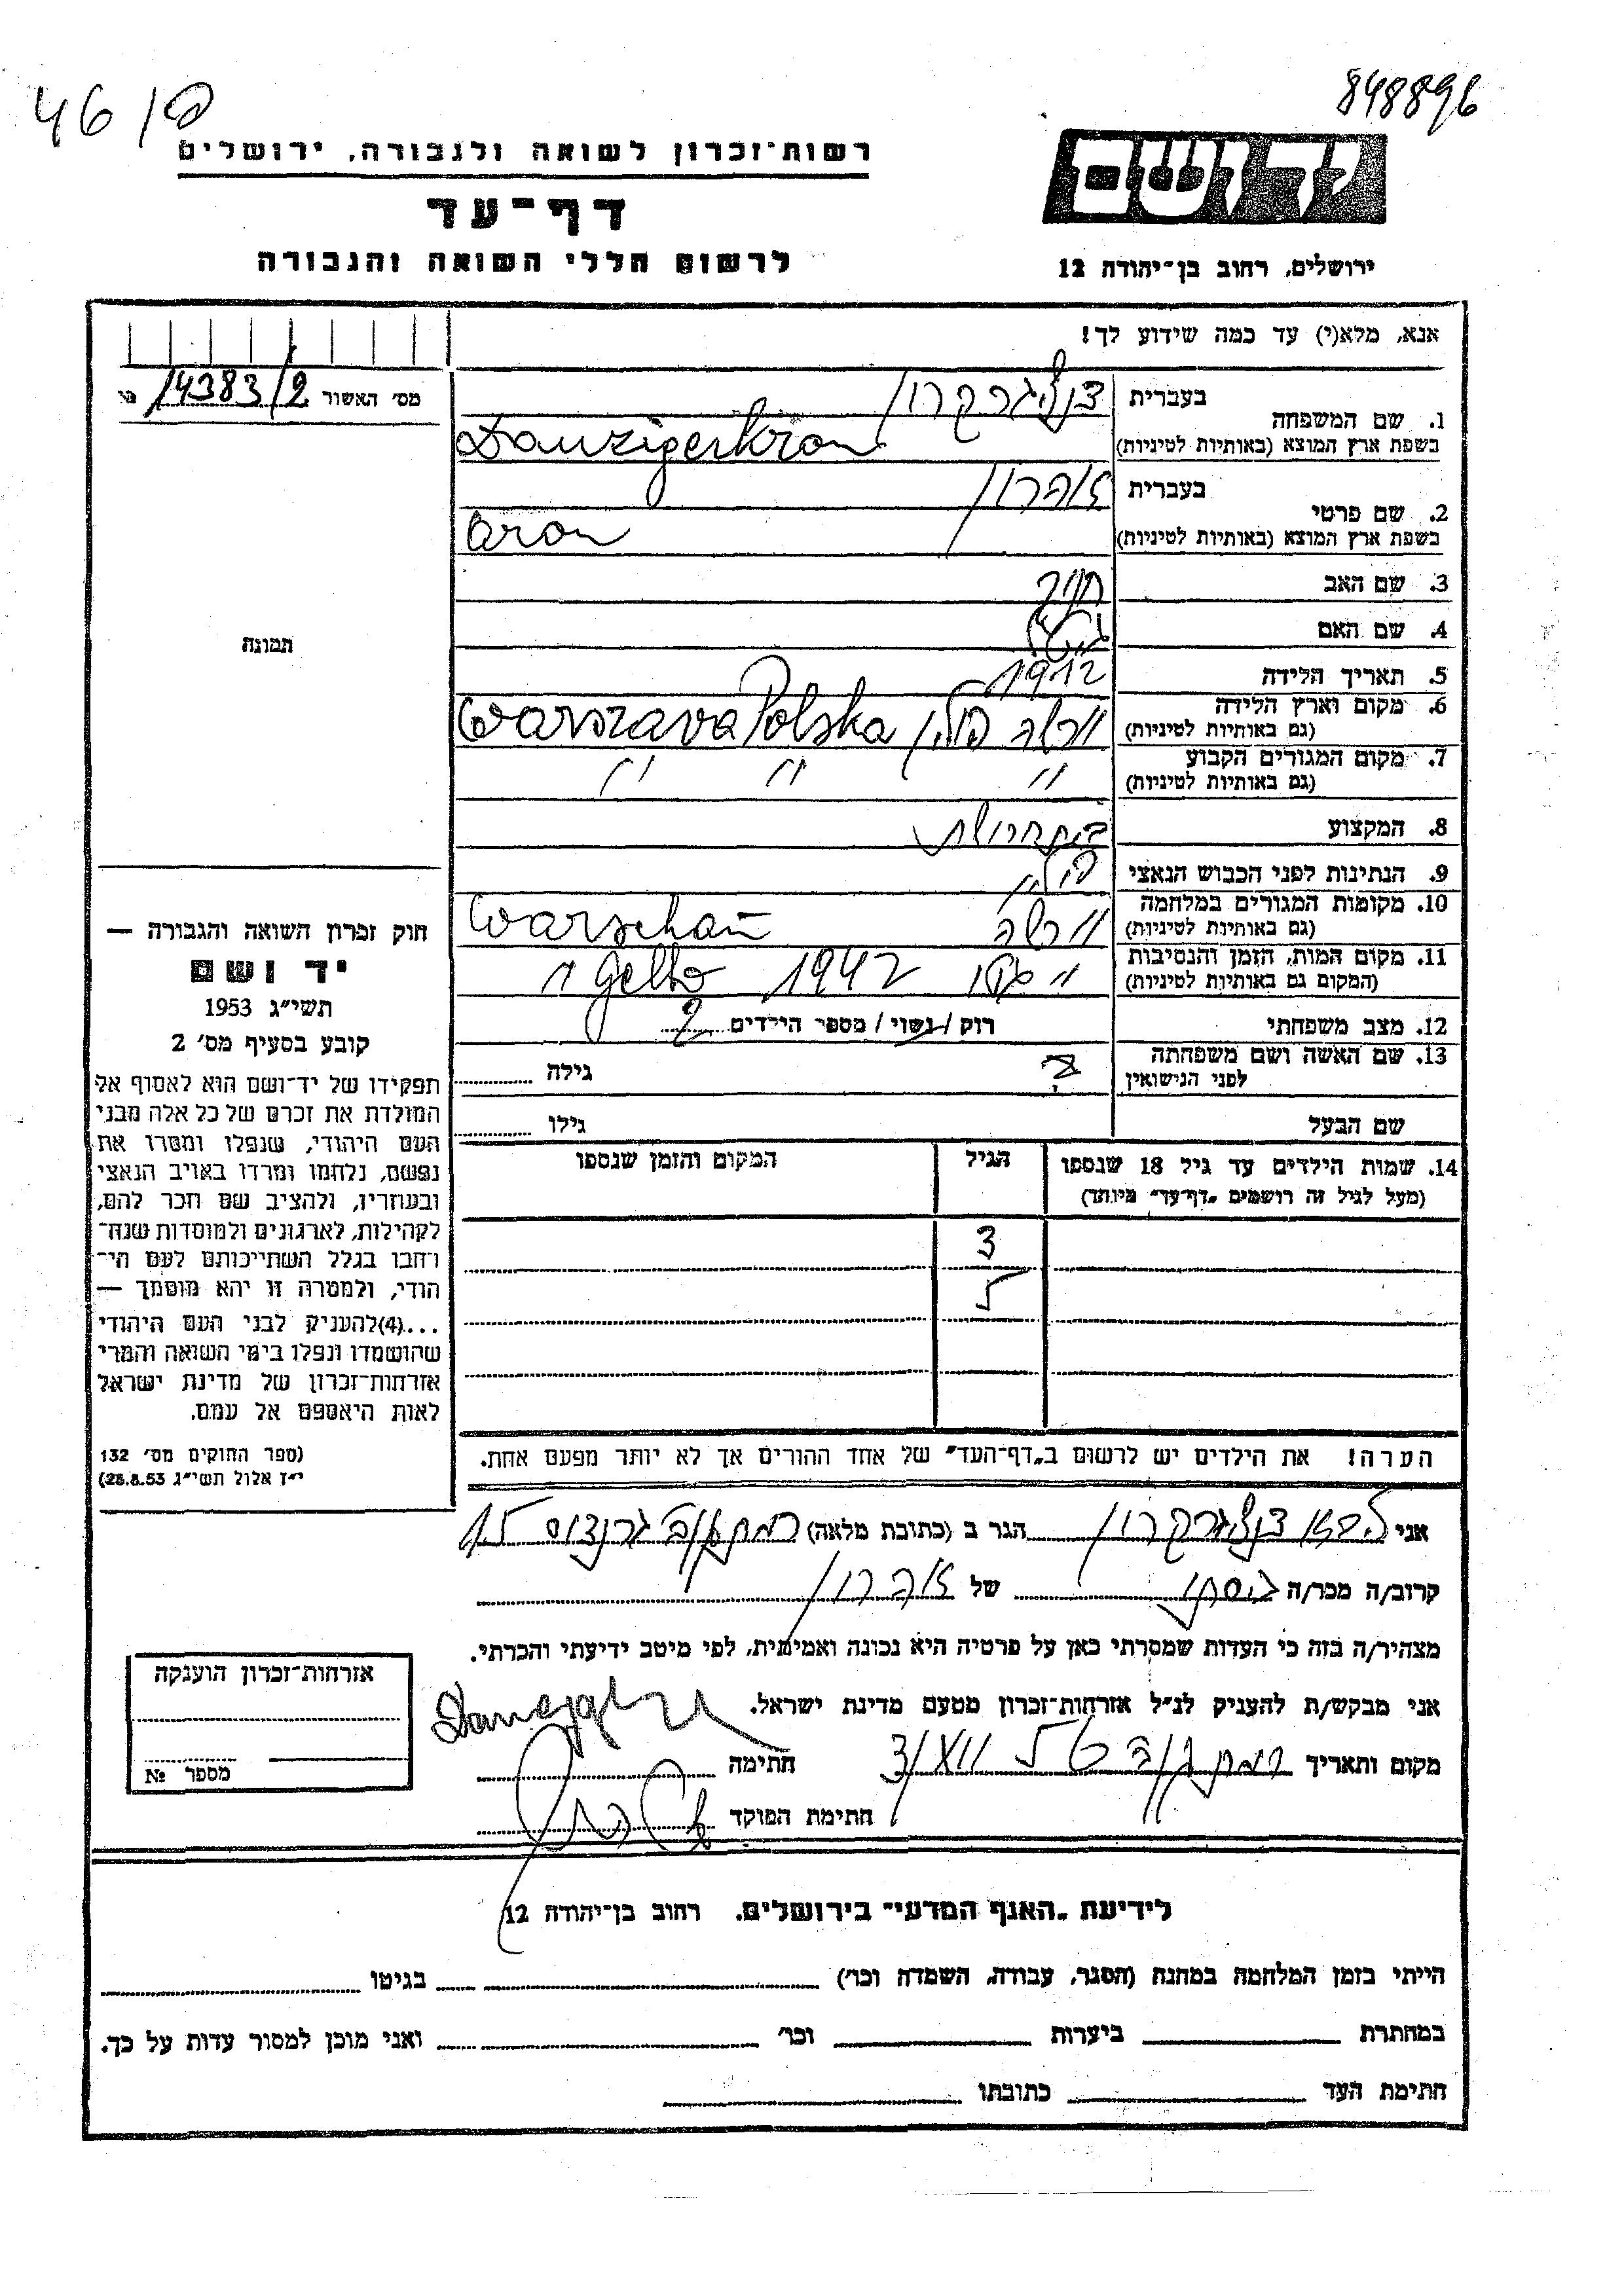 46 / ק
848896
רשות־זכרון לשואה ולגבורה, ירושלים
דף־עד
לרשום חללי השואה והגבורה
יד ושם
ירושלים, רחוב בן־יהודה 12
אנא, מלא(י) עד כמה שידוע לך!
מס׳ האשור 14383/2
1. שם המשפחה
בעברית דנציגרקרון
בשפת ארץ המוצא (באותיות לטיניות) Danzigerkron
2. שם פרטי
בעברית אהרון
בשפת ארץ המוצא (באותיות לטיניות) Aron
3. שם האב
4. שם האם
5. תאריך הלידה 1912
6. מקום וארץ הלידה
(גם באותיות לטיניות) ורשה פולין Warszava Polska
7. מקום המגורים הקבוע
(גם באותיות לטיניות) " " "
8. המקצוע
9. הנתינות לפני הכבוש הנאצי פולין
10. מקומות המגורים במלחמה
(גם באותיות לטיניות) ורשה Warschau
11. מקום המות, הזמן והנסיבות
(המקום גם באותיות לטיניות) " גטו 1942 Getto "
12. מצב משפחתי רוק / נשוי / מספר הילדים 2
13. שם האשה ושם משפחתה
לפני הנישואין ? גילה
שם הבעל גילו
14. שמות הילדים עד גיל 18 שנספו הגיל המקום והזמן שנספו
(מעל לגיל זה רושמים „דף־עד״ מיוחד)
3
5
הערה! את הילדים יש לרשום ב„דף־העד״ של אחד ההורים אך לא יותר מפעם אחת.
תמונה
חוק זכרון השואה והגבורה —
יד ושם
תשי״ג 1953
קובע בסעיף מס׳ 2
תפקידו של יד־ושם הוא לאסוף אל
המולדת את זכרם של כל אלה מבני
העם היהודי, שנפלו ומסרו את
נפשם, נלחמו ומרדו באויב הנאצי
ובעוזריו, ולהציב שם וזכר להם,
לקהילות, לארגונים ולמוסדות שנח־
רבו בגלל השתייכותם לעם הי־
הודי, ולמטרה זו יהא מוסמך —
...(4)להעניק לבני העם היהודי
שהושמדו ונפלו בימי השואה והמרי
אזרחות־זכרון של מדינת ישראל
לאות היאספם אל עמם.
(ספר החוקים מס׳ 132
י״ז אלול תשי״ג 28.8.53)
אני דנציגרקרון הגר ב (כתובת מלאה)
קרוב/ה מכר/ה של אהרון
מצהיר/ה בזה כי העדות שמסרתי כאן על פרטיה היא נכונה ואמיתית, לפי מיטב ידיעתי והכרתי.
אני מבקש/ת להעניק לנ״ל אזרחות־זכרון מטעם מדינת ישראל.
מקום ותאריך חתימה
חתימת הפוקד
אזרחות־זכרון הוענקה
מספר №
לידיעת „האגף המדעי״ בירושלים, רחוב בן־יהודה 12
הייתי בזמן המלחמה במחנה (הסגר, עבודה, השמדה וכו׳) בגיטו
במחתרת ביערות וכו׳ ואני מוכן למסור עדות על כך.
חתימת העד כתובתו